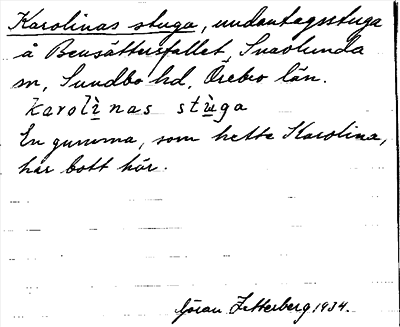 Karolinas stuga, undantagsstuga
å Bensätterfallet, Svaolunda
sn, Sundbo hd, Örebro län.
karolìnas stùga
En gumma, som hette Karolina,
har bott här.
Göran Zetterberg 1934.